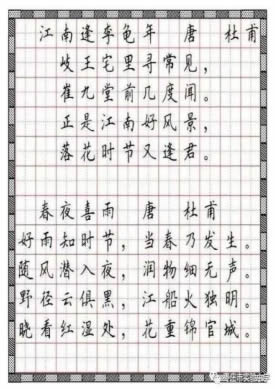 江南逢李龟年 唐 杜甫
岐王宅里寻常见，
崔九堂前几度闻。
正是江南好风景，
落花时节又逢君。
春夜喜雨 唐 杜甫
好雨知时节，当春乃发生。
随风潜入夜，润物细无声。
野径云俱黑，江船火独明。
晓看红湿处，花重锦官城。